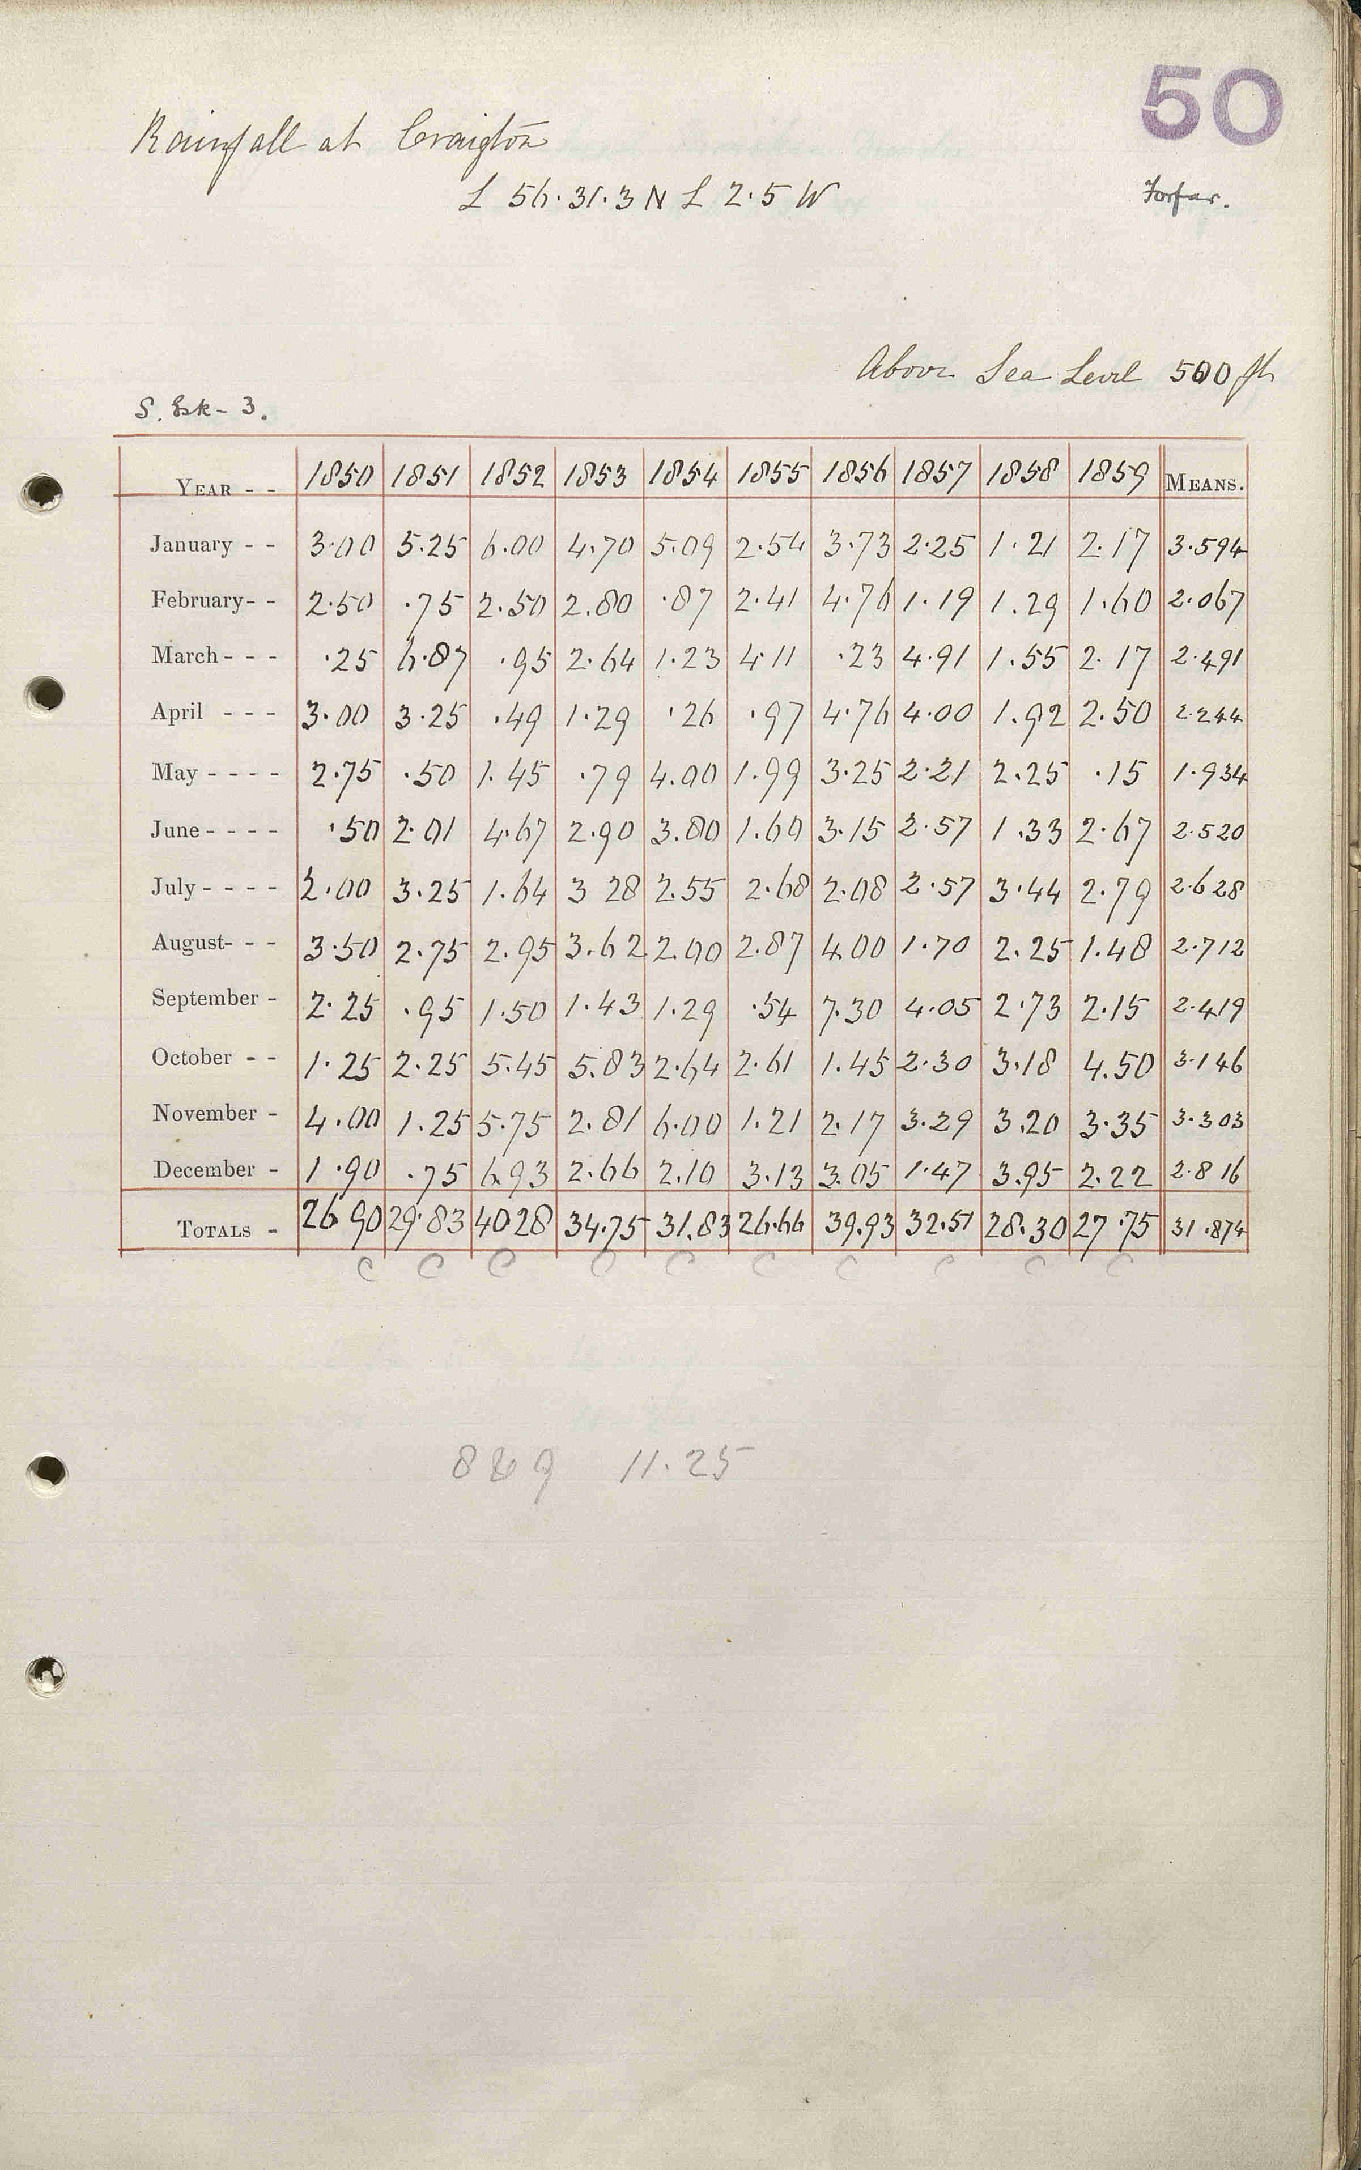 50
Rainfall at Craigton
L 56.31.3 N L 2.5 W
Forfar.
Above Sea Level 500 ft
S. Esk - 3.
YEAR - - 1850 1851 1852 1853 1854 1855 1856 1857 1858 1859 MEANS.
January - - 3.00 5.25 6.00 4.70 5.09 2.54 3.73 2.25 1.21 2.17 3.594
February- - 2.50 .75 2.50 2.80 .87 2.41 4.76 1.19 1.29 1.60 2.067
March - - - .25 6.87 .95 2.64 1.23 4.11 .23 4.91 1.55 2.17 2.491
April - - - 3.00 3.25 .49 1.29 .26 .97 4.76 4.00 1.92 2.50 2.244
May - - - - 2.75 .50 1.45 .79 4.00 1.99 3.25 2.21 2.25 .15 1.934
June - - - - .50 2.01 4.67 2.90 3.80 1.60 3.15 2.57 1.33 2.67 2.520
July - - - - 2.00 3.25 1.64 3 28 2.55 2.68 2.08 2.57 3.44 2.79 2.628
August- - - 3.50 2.75 2.95 3.62 2.00 2.87 4.00 1.70 2.25 1.48 2.712
September - 2.25 .95 1.50 1.43 1.29 .54 7.30 4.05 2.73 2.15 2.419
October - - 1.25 2.25 5.45 5.83 2.64 2.61 1.45 2.30 3.18 4.50 3.146
November - 4.00 1.25 5.75 2.81 6.00 1.21 2.17 3.29 3.20 3.35 3.303
December - 1.90 .75 6.93 2.66 2.10 3.13 3.05 1.47 3.95 2.22 2.816
TOTALS - 26 90 29.83 40 28 34.75 31.83 26.66 39.93 32.51 28.30 27.75 31.874
C C C C C C C C C C
11.25